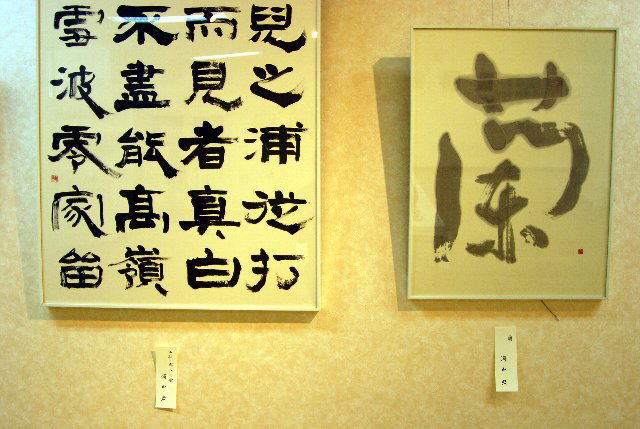 兒之浦従打
而見者真白
不盡能高嶺
雪波零家留
蘭